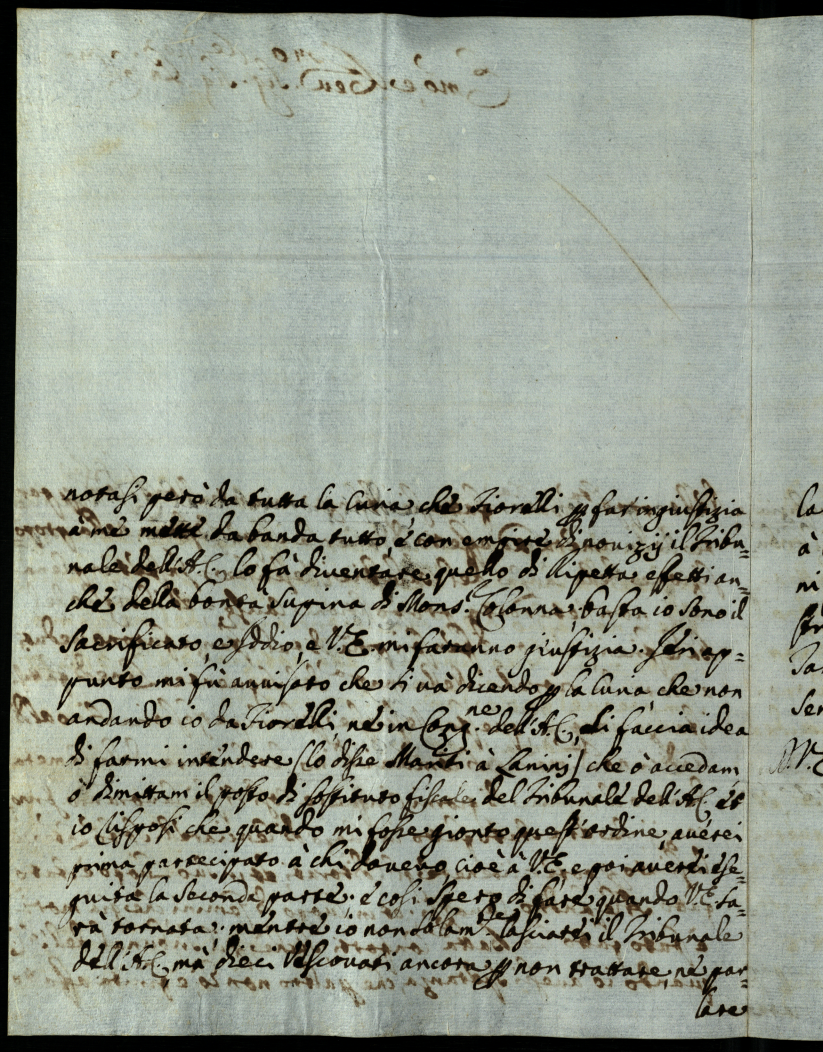 notasi però da tutta la Curia che Fiorelli p far ingiustizia
à me mette da banda tutto è con empire di novizij il Tribu=
nale dell'AC. lo fà diventare quello di Ripetta effetti an=
che della bontà supina di Mons.r Colonna basta io sono il
Sacrificato, e Iddio, e V.E. mi faranno giustizia. Ieri ap=
punto mi fù avvisato che si và dicendo p la Curia che non
andando io da Fiorelli, nè in Cong.ne dell'AC, si faccia idea
di farmi intendere (lo disse Mariti à Laninj) che ò accedam
ò dimittam il posto di sostituto fiscale del Tribunale dell'AC. et
io risposi che quando mi fosse gionto quest'ordine, averei
prima partecipato à chi dovevo, cioè à V.E. e poi averei ese=
guita la seconda parte: e così spero di fare quando V.E. sa=
rà tornata: mentre io non solam.te lasciarei il Tribunale
dell'AC. mà dieci Vescovati ancora p non trattare, nè par=
lare
la
à
ni
Ser